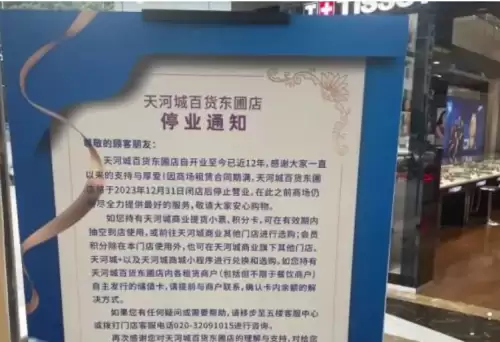 TISSOT
天河城百货东圃店
停业通知
尊敬的顾客朋友：
天河城百货东圃店自开业至今已近12年，感谢大家一直
以来的支持与厚爱！因商场租赁合同期满，天河城百货东圃
店将于2023年12月31日闭店后停止营业，在此之前商场仍
将尽全力提供最好的服务，敬请大家安心购物。
如您持有天河城商业提货小票、积分卡，可在有效期内
抽空到店使用，或前往天河城商业其他门店进行选购；会员
积分除在本门店使用外，也可在天河城商业旗下其他门店、
天河城+以及天河城商城小程序进行兑换和选购。如您持有
天河城百货东圃店内各租赁商户（包括但不限于餐饮商户）
自主发行的储值卡，请提前与商户联系，确认卡内余额的解
决方式。
如果您有任何疑问或需要帮助，请移步至五楼客服中心
或拨打门店客服电话020-32091015进行咨询。
再次感谢您对天河城百货东圃店的理解与支持，对给您